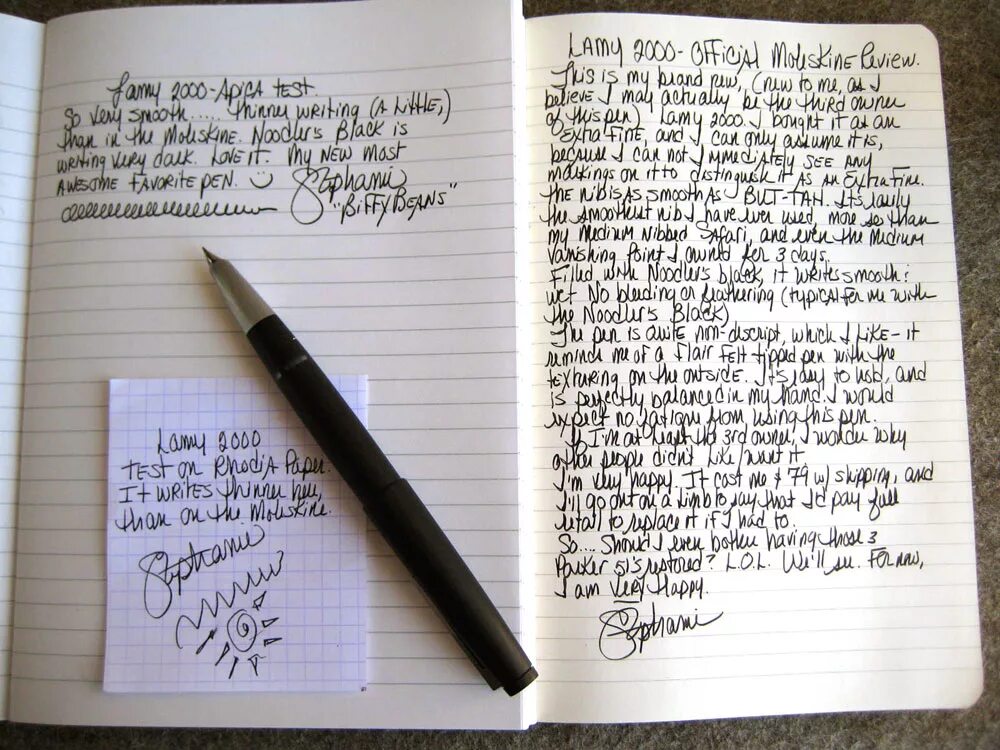 Lamy 2000-Apica test
So very smooth..... thinner writing (a little,)
than in the Moleskine. Noodler's Black is
writing very dark. Love it. My new most
awesome favorite pen.
Stephanie
"BiffyBeans"
Lamy 2000
Test on Rhodia Paper.
It writes thinner here,
than on the Moleskine.
Stephanie
Lamy 2000- Official Moleskine Review.
This is my brand new, (new to me, as I
believe I may actually be the third owner
of this pen) Lamy 2000. I bought it as an
extra fine, and I can only assume it is,
because I can not immediately see any
markings on it to distinguish it as an extra fine.
The nib is as smooth as BUT-TAH. Its easily
the smoothest nib I have ever used, more so than
my medium nibbed Safari, and even the medium
Vanishing Point I owned for 3 days.
Filled with Noodler's black, it writes smooth &
wet. No bleeding or feathering (typical for me with
the Noodler's Black)
The pen is quite non-discript, which I like- it
reminds me of a Flair felt tipped pen with the
texturing on the outside. It's easy to hold, and
is perfectly balanced in my hand. I would
expect no fatigue from using this pen.
If I'm at least the 3rd owner, I wonder why
other people didn't like/want it.
I'm very happy. It cost me $79 w/ shipping, and
I'll go out on a limb to say that I'd pay full
retail to replace it if I had to.
So.... Should I even bother having those 3
Parker 51's restored? L.O.L. We'll see. For now,
I am very happy.
Stephanie